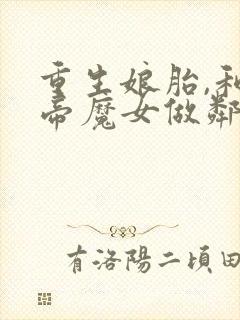 重生娘胎,和
帝魔女做鄰
有洛陽二頃田